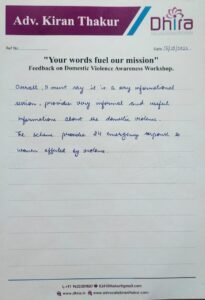 Adv. Kiran Thakur
Dhira
Ref No.
Date
"Your words fuel our mission"
Feedback on Domestic Violence Awareness Workshop.
Overall, I must say it is a very informational
session, provides very informal and useful
informations about the domestic violence.
The scheme provides 24 emergency response to
women affected by violence.
www.dhira.in
www.advocatekiranthakur.com